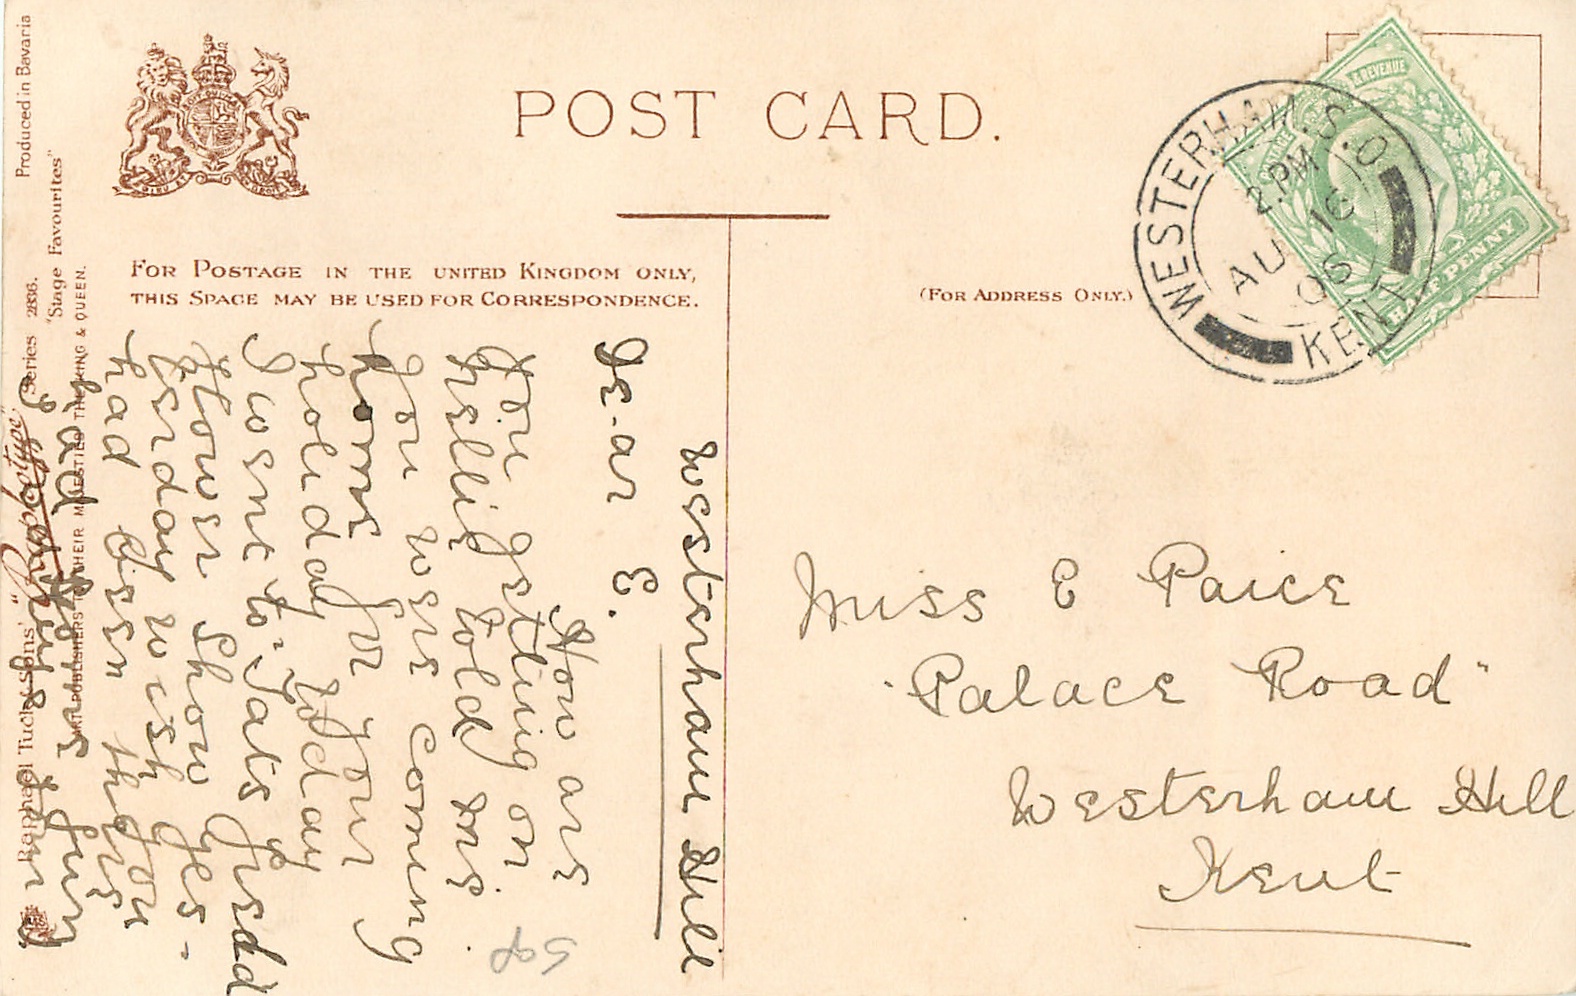 POST CARD.
FOR POSTAGE IN THE UNITED KINGDOM ONLY,
THIS SPACE MAY BE USED FOR CORRESPONDENCE.
(FOR ADDRESS ONLY.)
WESTERHAM. S.O
2. PM
AU 16
KENT
& REVENUE
HALF PENNY
Westerham Hill
De-ar E.
How are
you getting on
Nellie told me
you were coming
home for your
holiday today
I went to Tats
flower show yes-
terday wish you
had been there
had
Miss E Paice
"Palace Road"
Westerham Hill
Kent
Produced in Bavaria
"Stage Favourites"
Series 2836.
Raphael Tuck & Sons'
ART PUBLISHERS TO THEIR MAJESTIES THE KING & QUEEN.
50p